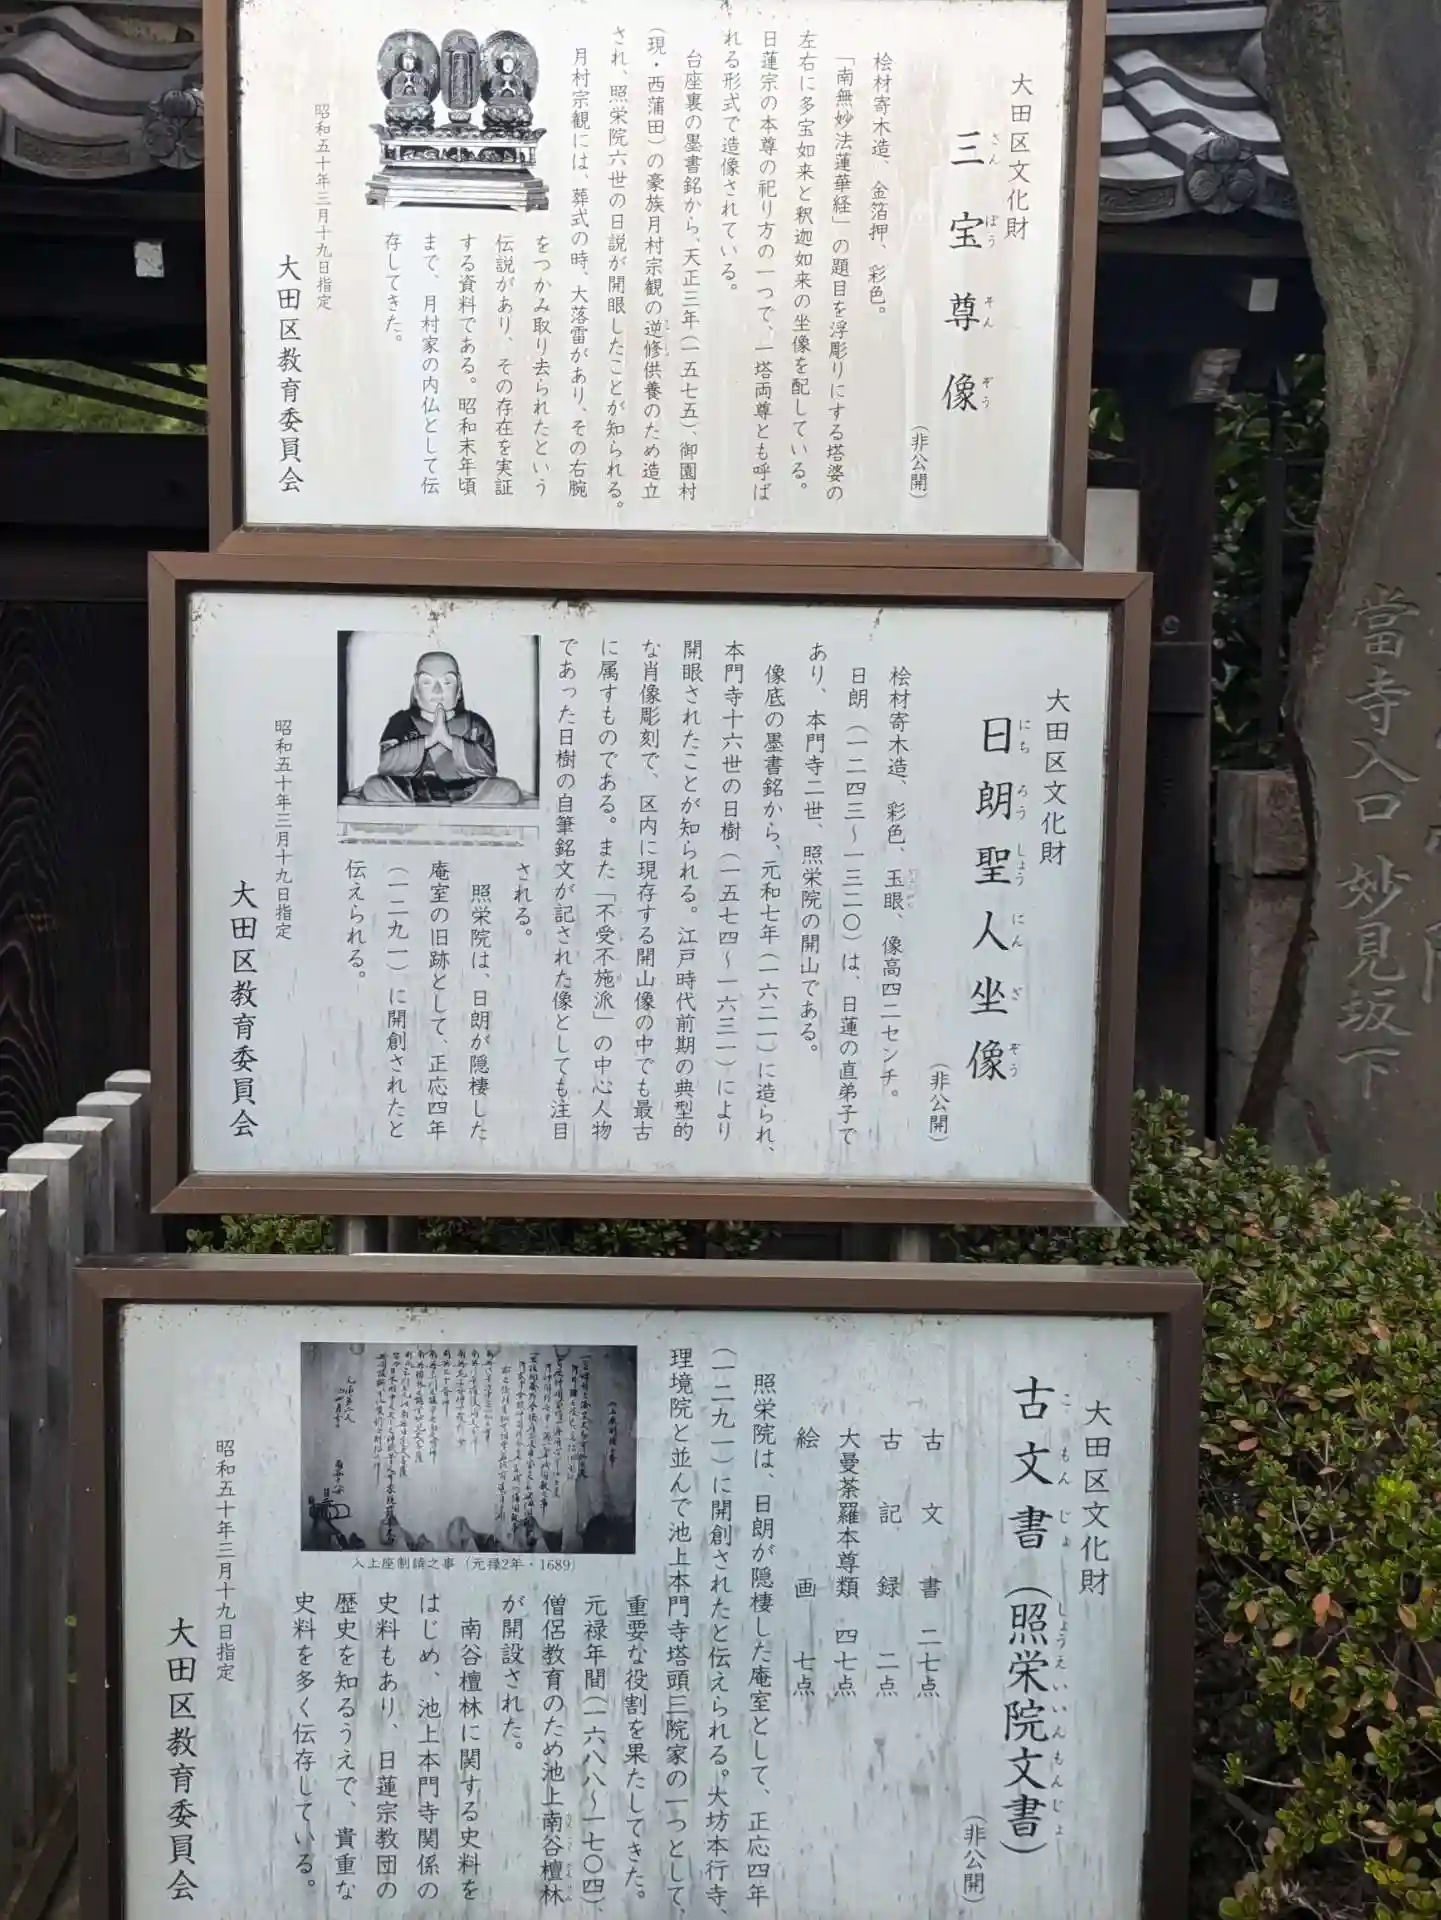 大田区文化財
三宝尊像
さんぼうそんぞう
(非公開)
桧材寄木造、金箔押、彩色。
「南無妙法蓮華経」の題目を浮彫りにする塔婆の
左右に多宝如来と釈迦如来の坐像を配している。
日蓮宗の本尊の祀り方の一つで、一塔両尊とも呼ば
れる形式で造像されている。
台座裏の墨書銘から、天正三年(一五七五)、御園村
(現・西蒲田)の豪族月村宗観の逆修供養のため造立
され、照栄院六世の日説が開眼したことが知られる。
月村宗観には、葬式の時、大落雷があり、その右腕
をつかみ取り去られたという
伝説があり、その存在を実証
する資料である。昭和末年頃
まで、月村家の内仏として伝
存してきた。
昭和五十年三月十九日指定
大田区教育委員会
大田区文化財
日朗聖人坐像
にちろうしょうにんざぞう
(非公開)
桧材寄木造、彩色、玉眼、像高四二センチ。
日朗(一二四三～一三二〇)は、日蓮の直弟子で
あり、本門寺二世、照栄院の開山である。
像底の墨書銘から、元和七年(一六二一)に造られ、
本門寺十六世の日樹(一五七四～一六三一)により
開眼されたことが知られる。江戸時代前期の典型的
な肖像彫刻で、区内に現存する開山像の中でも最古
に属すものである。また「不受不施派」の中心人物
であった日樹の自筆銘文が記された像としても注目
される。
照栄院は、日朗が隠棲した
庵室の旧跡として、正応四年
(一二九一)に開創されたと
伝えられる。
昭和五十年三月十九日指定
大田区教育委員会
大田区文化財
古文書(照栄院文書)
こもんじょ しょうえいいんもんじょ
(非公開)
古文書 二七点
古記録 二点
大曼荼羅本尊類 四七点
絵画 七点
照栄院は、日朗が隠棲した庵室として、正応四年
(一二九一)に開創されたと伝えられる。大坊本行寺、
理境院と並んで池上本門寺塔頭三院家の一つとして、
重要な役割を果たしてきた。
元禄年間(一六八八～一七〇四)、
僧侶教育のため池上南谷檀林
が開設された。
南谷檀林に関する史料を
はじめ、池上本門寺関係の
史料もあり、日蓮宗教団の
歴史を知るうえで、貴重な
史料を多く伝存している。
入上座制鐃之事(元禄2年・1689)
昭和五十年三月十九日指定
大田区教育委員会
當寺入口 妙見坂下